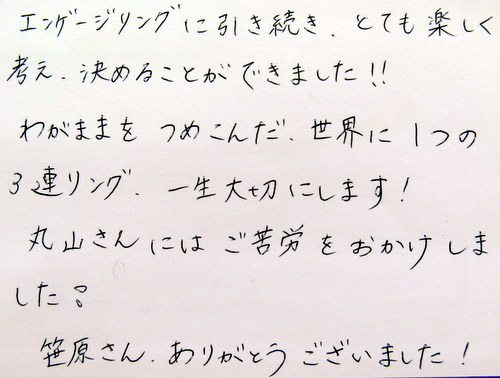 エンゲージリングに引き続き、とても楽しく
考え、決めることができました!!
わがままを つめこんだ、世界に1つの
3連リング、一生大切にします!
丸山さんにはご苦労をおかけしま
した。
笹原さん、ありがとうございました!